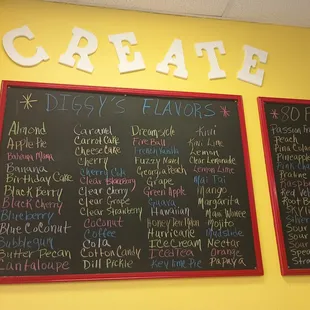 CREATE
DIGGY'S FLAVORS
Almond
Apple
Bahama Mama
Banana
Birthday Cake
Black Berry
Black Cherry
Blueberry
Blue Coconut
Bubblegum
Butter Pecan
Cantaloupe
Caramel
Carrot Cake
Cheese Cake
Cherry
Cherry Cola
Clear Blueberry
Clear Cherry
Clear Grape
Clear Strawberry
Coconut
Coffee
Cola
Cotton Candy
Dill Pickle
Dreamsicle
Fire Ball
French Vanilla
Fuzzy Navel
Georgia Peach
Grape
Green Apple
Guava
Hawaiian
Honey Dew
Hurricane
Ice Cream
Iced Tea
Key Lime Pie
Kiwi
Kiwi Lime
Lemon
Clear Lemonade
Lemon Lime
Mai Tai
Mango
Margarita
Mojito
Mudslide
Nectar
Orange
Papaya
80 F
Passion
Peach
Pina
Pineapple
Pink
Root B
Sour
Sour
Sour